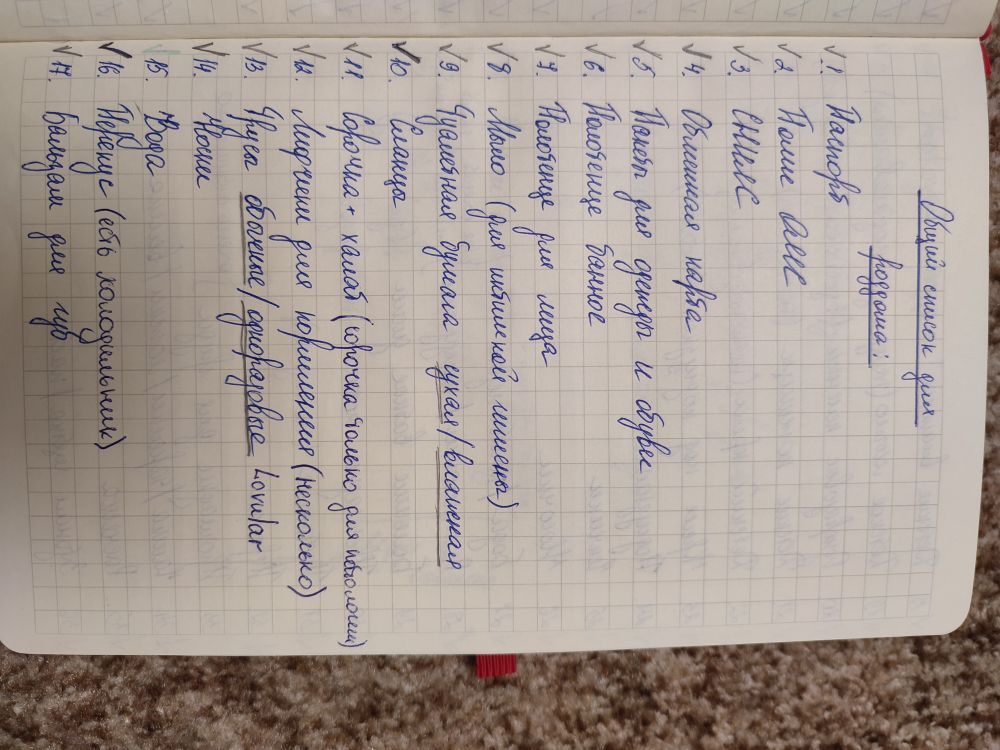 Общий список для
роддома:
✓ 1. Паспорт
✓ 2. Полис ОМС
✓ 3. СНИЛС
✓ 4. Обменная карта
✓ 5. Пакеты для одежды и обуви
✓ 6. Полотенце банное
✓ 7. Полотенце для лица
✓ 8. Мыло (для интимной гигиены)
✓ 9. Туалетная бумага сухая/влажная
✓ 10. Сланцы
✓ 11. Сорочка + халат (сорочка только для патологии)
✓ 12. Лифчики для кормления (несколько)
✓ 13. Трусы обычные/одноразовые Lovular
✓ 14. Носки
✓ 15. Вода
✓ 16. Перекус (есть холодильник)
✓ 17. Бальзам для губ